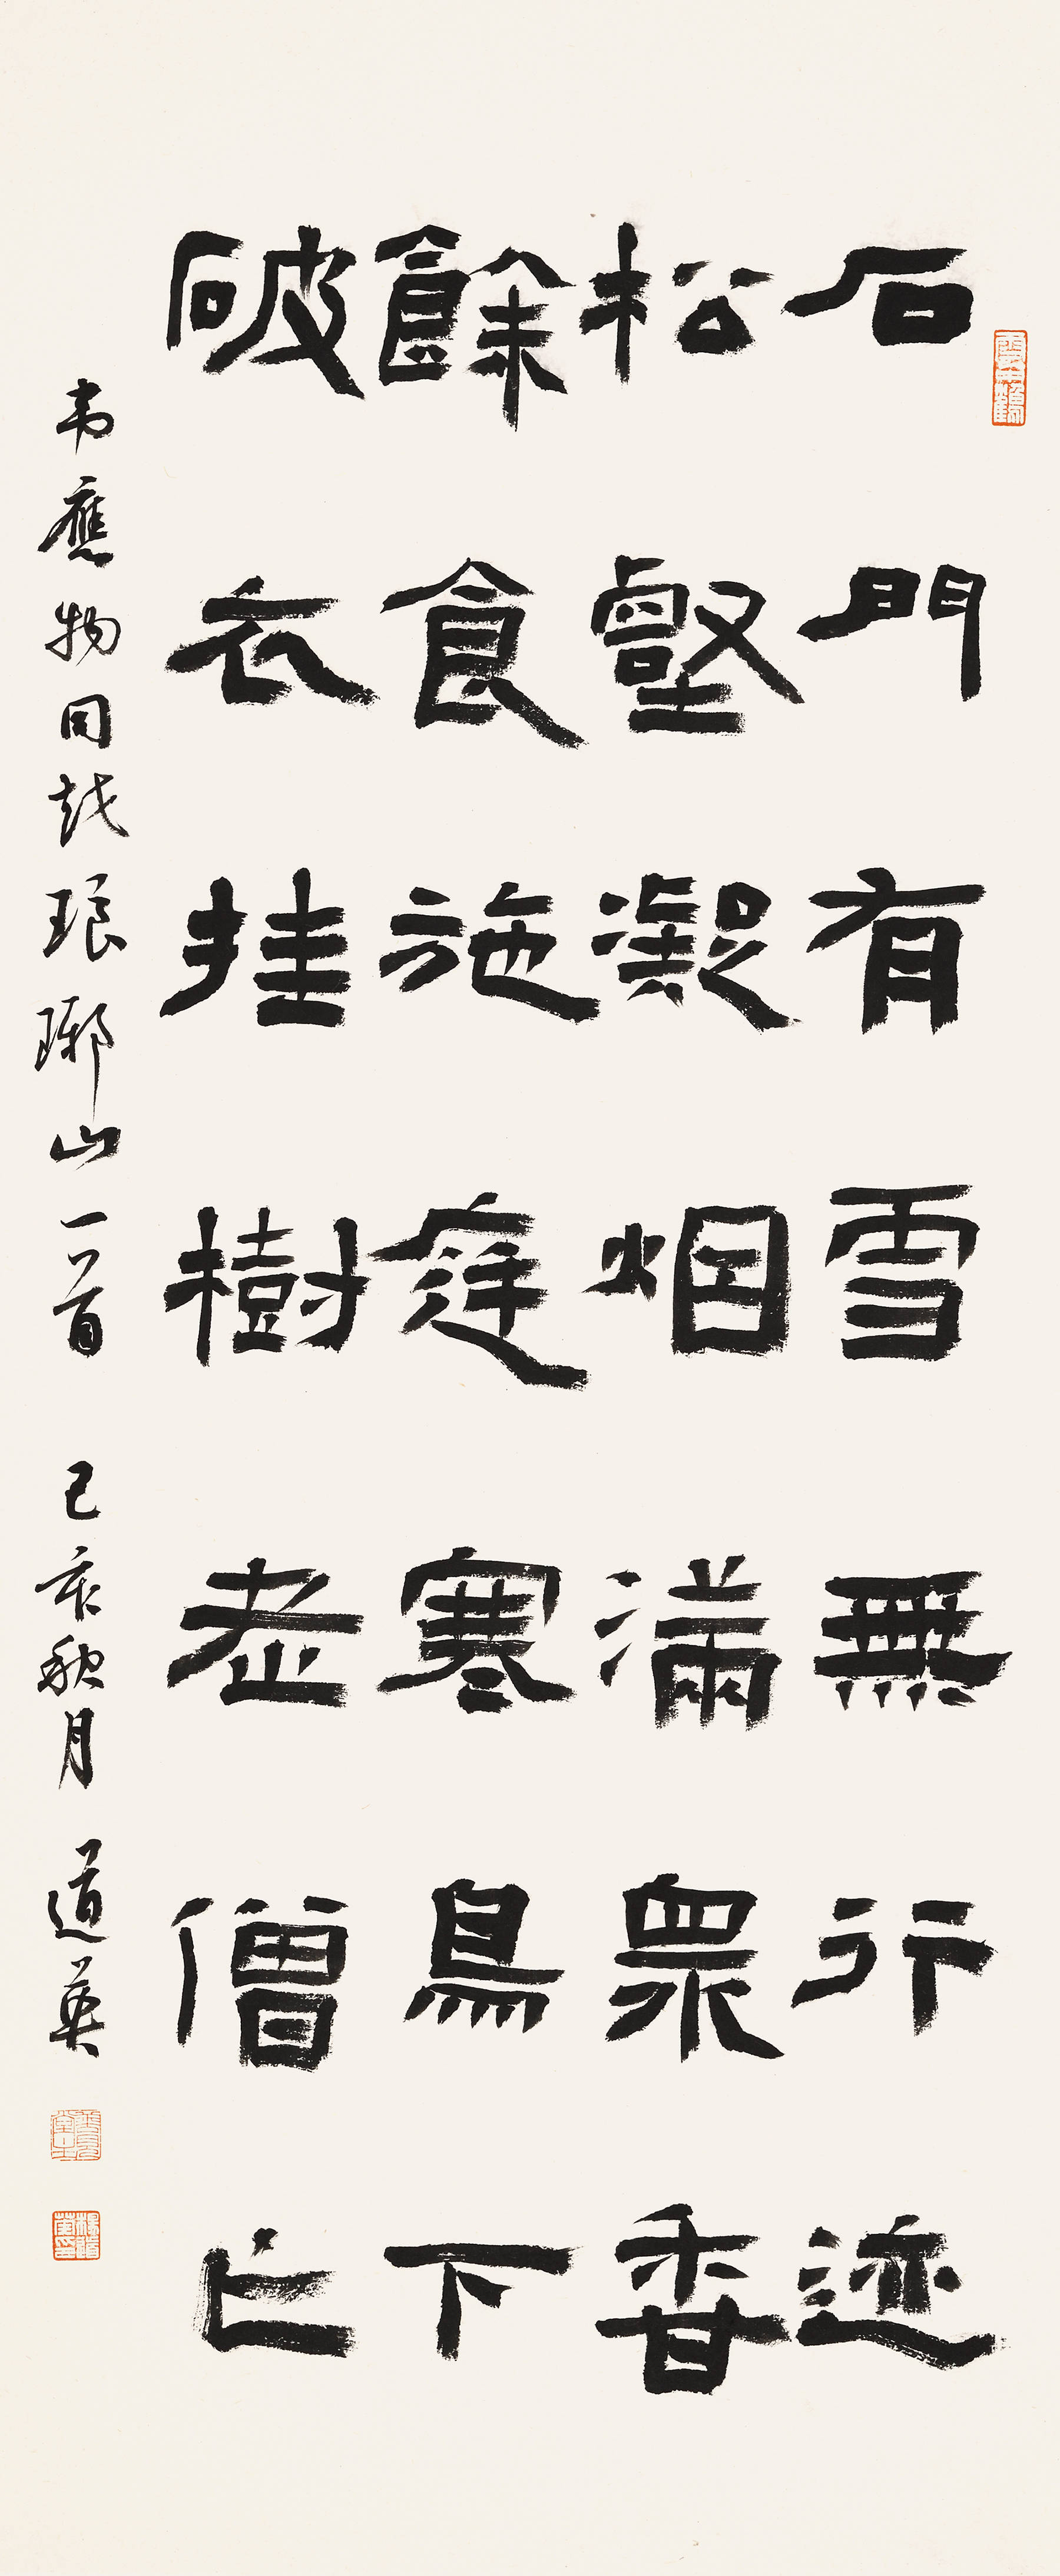 石門有雪無行迹
松壑凝烟滿眾香
餘食施庭寒鳥下
破衣挂樹老僧亡
韦應物同越琅琊山一首 己亥秋月 道英